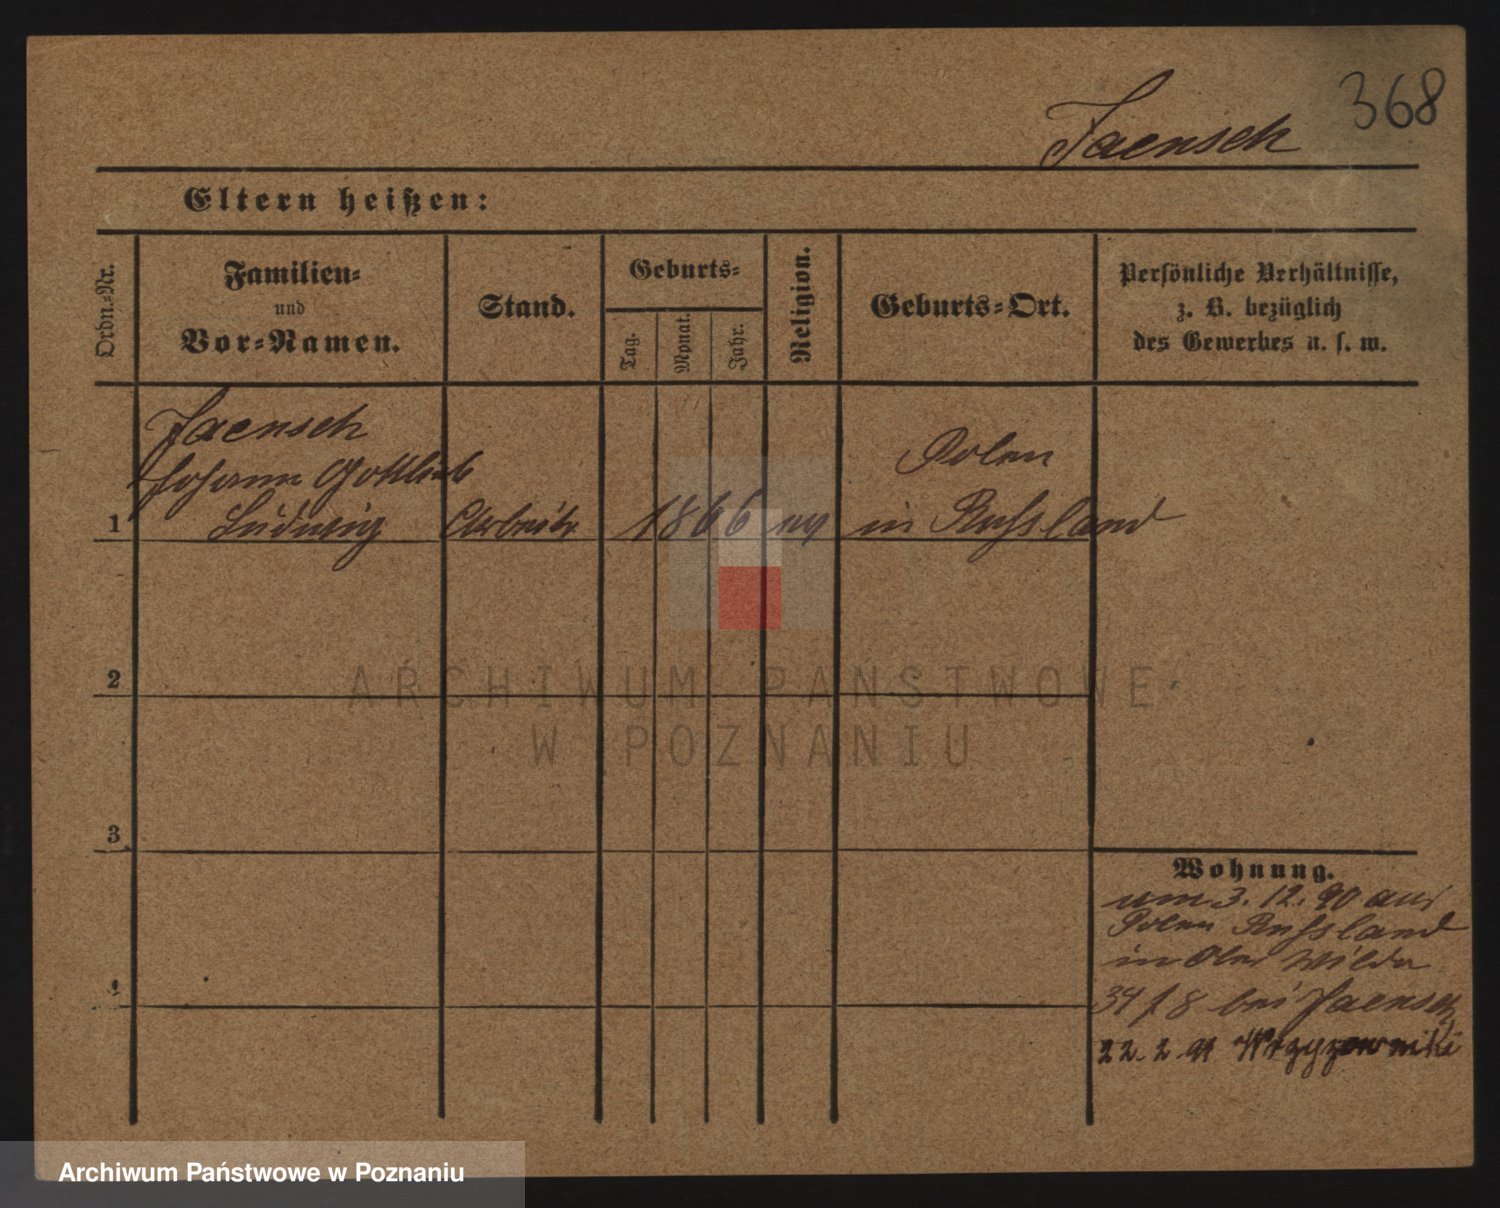 368
Jaensch
Eltern heißen:
Ordn.-Nr.
Familien-
und
Vor-Namen.
Stand.
Geburts-
Tag.
Monat.
Jahr.
Religion.
Geburts-Ort.
Persönliche Verhältnisse,
z. B. bezüglich
des Gewerbes u. s. w.
Jaensch
Johann Gottlieb
Ludwig
1
Arbeiter
1866
ev
Polen
in Russland
2
3
4
Wohnung.
3. 12. 90 aus
Polen Russland
in Ober Wilda
34 f 8 bei Jaensch
22. 2. 91
ARCHIWUM PAŃSTWOWE
W POZNANIU
Archiwum Państwowe w Poznaniu